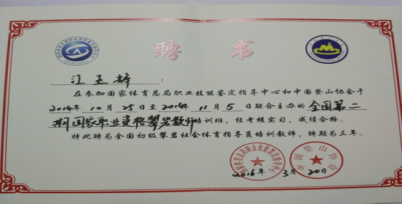 聘书
江玉辉
在参加国家体育总局职业技能鉴定指导中心和中国登山协会于
2014年10月25日至2014年11月5日联合主办的全国第二
期国家职业资格攀岩教师培训班，经考核实习，成绩合格。
特此聘为全国初级攀岩社会体育指导员培训教师，聘期为三年。
2016年3月20日
中国登山协会